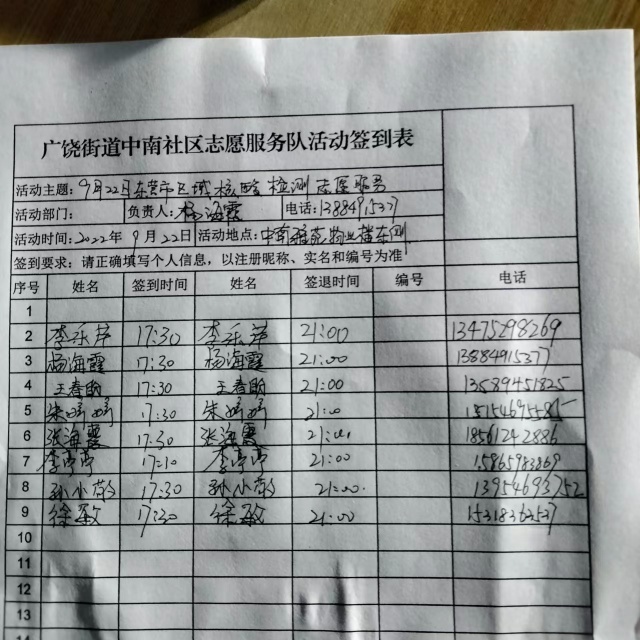 广饶街道中南社区志愿服务队活动签到表
活动主题：9月22日东营市区域核酸检测志愿服务
活动部门： 负责人：杨海霞 电话：13884915377
活动时间：2022年9月22日 活动地点：中南雅苑物业楼东侧
签到要求：请正确填写个人信息，以注册昵称、实名和编号为准
序号 姓名 签到时间 姓名 签退时间 编号 电话
1
2 李乐芦 17:30 李乐芦 21:00 13475298269
3 杨海霞 17:30 杨海霞 21:00 13884915377
4 王春 17:30 王春 21:00 13589451825
5 朱婷婷 17:30 朱婷婷 21:00
6 张海霞 17:30 张海霞 21:00 18561242886
7 李亭亭 17:10 李亭亭 21:00 15865983869
8 孙小敏 17:30 孙小敏 21:00 13954693752
9 徐敏 17:30 徐敏 21:00 15318362537
10
11
12
13
14